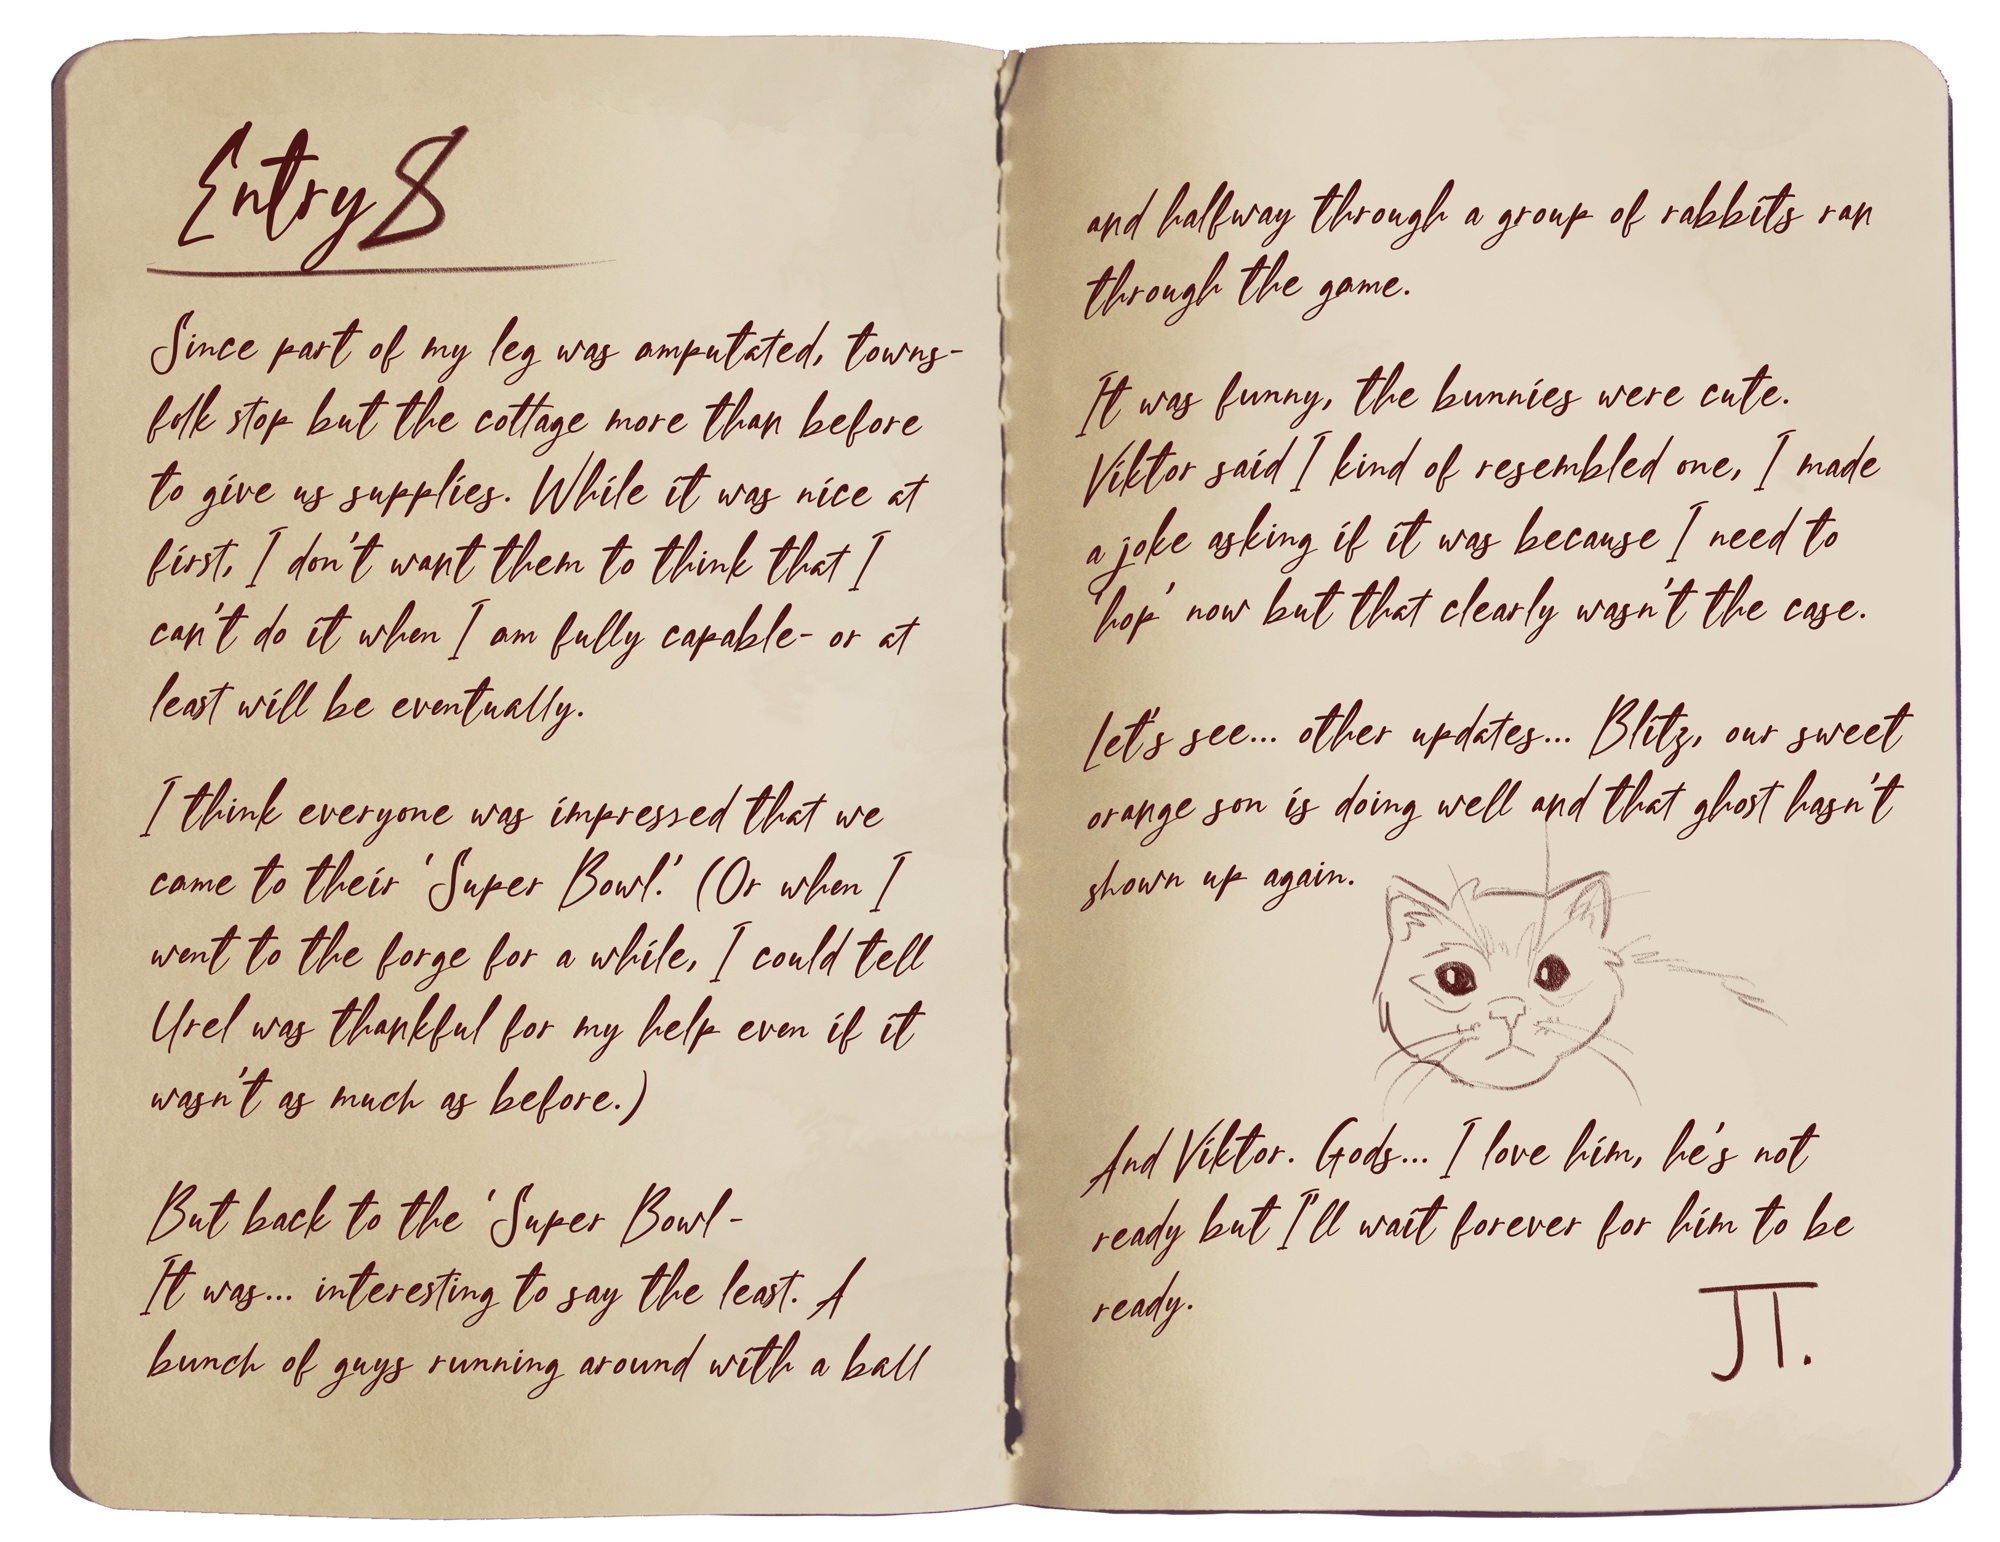 Entry 8
Since part of my leg was amputated, towns-
folk stop but the cottage more than before
to give us supplies. While it was nice at
first, I don't want them to think that I
can't do it when I am fully capable- or at
least will be eventually.
I think everyone was impressed that we
came to their 'Super Bowl.' (Or when I
went to the forge for a while, I could tell
Urel was thankful for my help even if it
wasn't as much as before.)
But back to the 'Super Bowl-
It was... interesting to say the least. A
bunch of guys running around with a ball
and halfway through a group of rabbits ran
through the game.
It was funny, the bunnies were cute.
Viktor said I kind of resembled one, I made
a joke asking if it was because I need to
'hop' now but that clearly wasn't the case.
Let's see... other updates... Blitz, our sweet
orange son is doing well and that ghost hasn't
shown up again.
And Viktor. Gods... I love him, he's not
ready but I'll wait forever for him to be
ready.
JT.